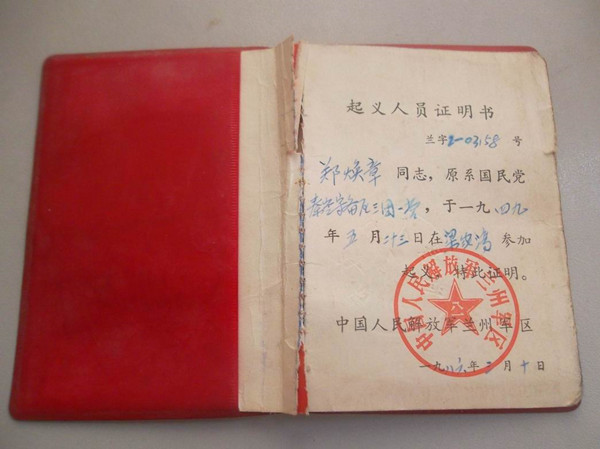 起义人员证明书
兰字2-03158号
郑焕章 同志，原系国民党
三团一营，于一九四九
年五月廿三日在梁家湾参加
起义。特此证明。
中国人民解放军兰州军区
中国人民解放军兰州军区
八一
一九八六年 月十日